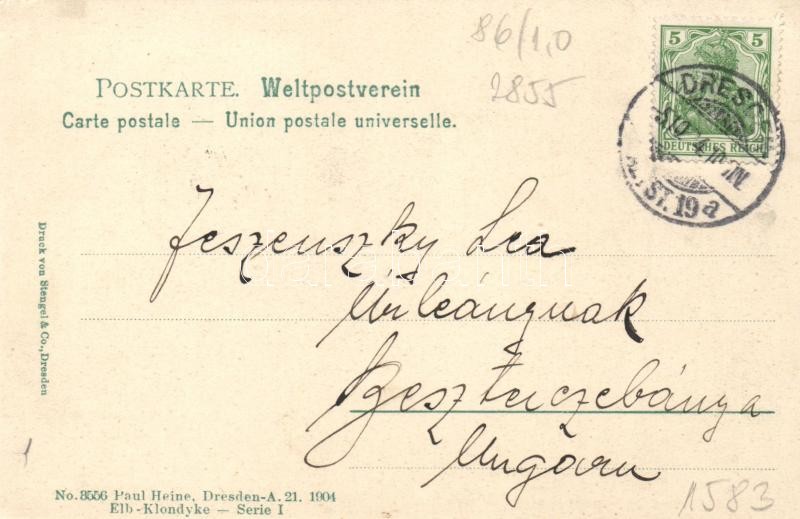 86/1,0
2855
5 5
DEUTSCHES REICH
DRESD
ALTST. 19a
POSTKARTE. Weltpostverein
Carte postale — Union postale universelle.
Jeszenszky Lea
Úrleánynak
Beszterczebánya
Ungarn
Druck von Stengel & Co., Dresden
No. 8556 Paul Heine, Dresden-A. 21. 1904
Elb-Klondyke — Serie I
1583